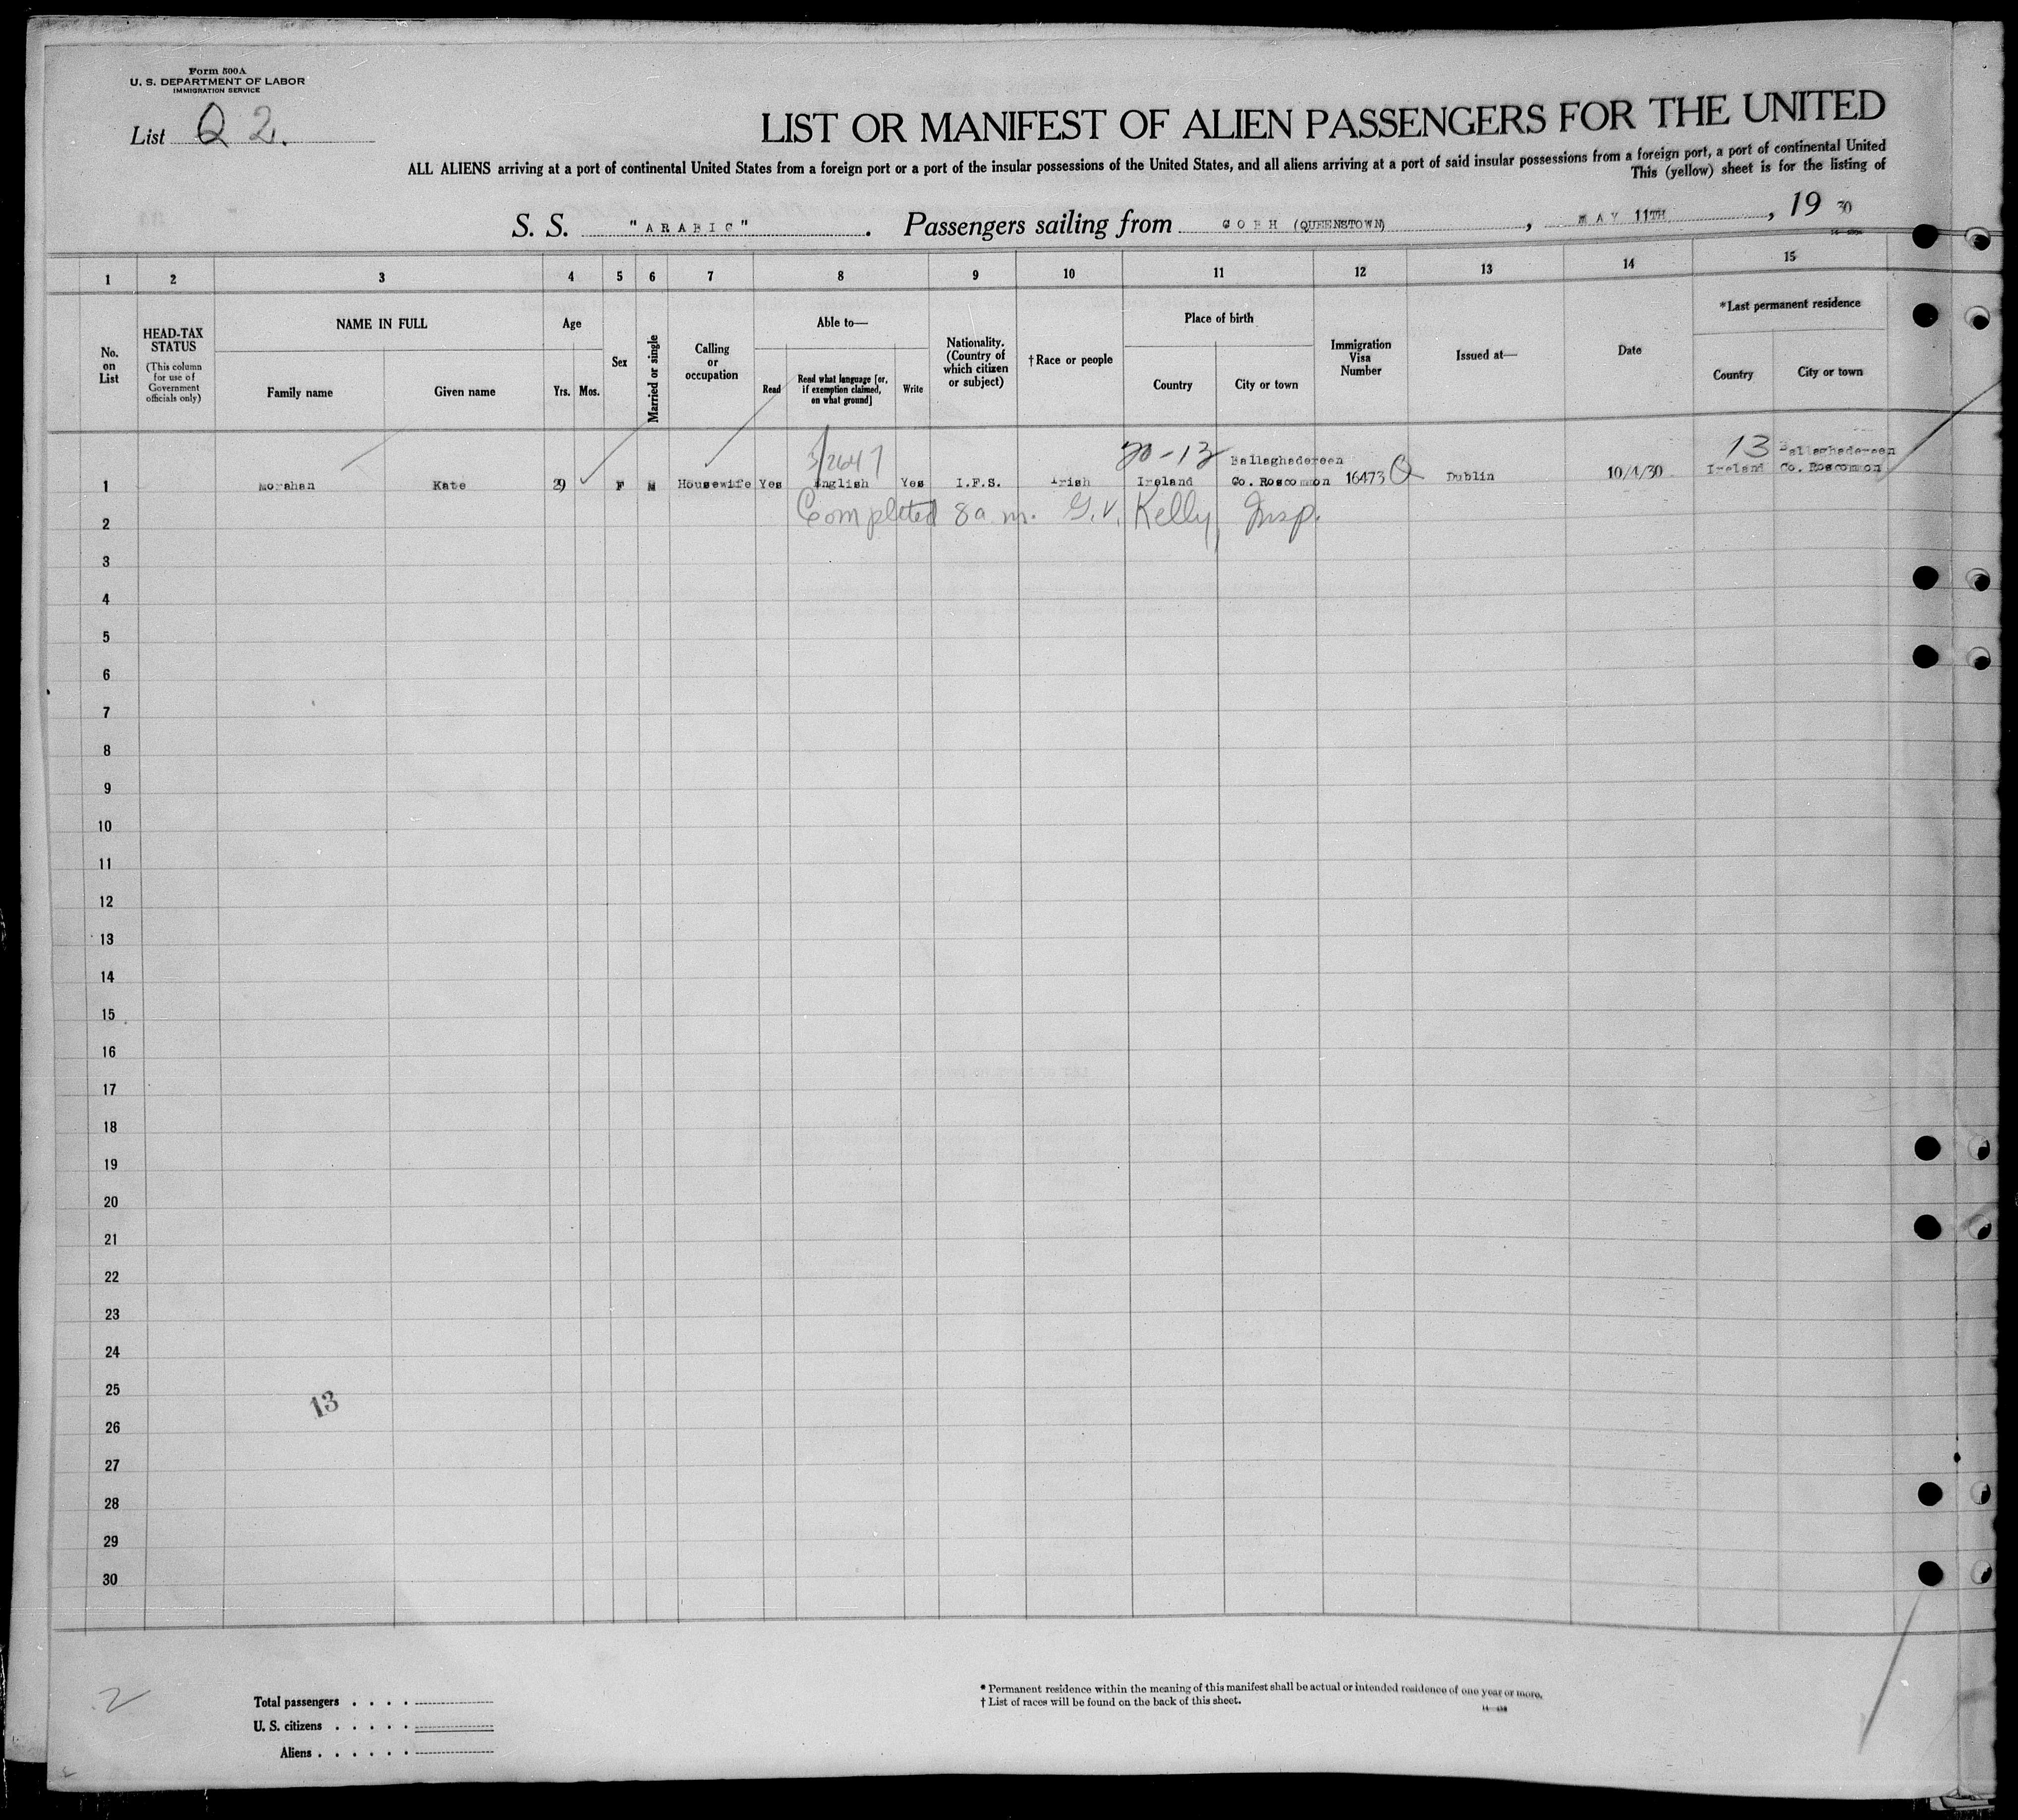 Form 500A
U. S. DEPARTMENT OF LABOR
IMMIGRATION SERVICE
List Q 2.
LIST OR MANIFEST OF ALIEN PASSENGERS FOR THE UNITED
ALL ALIENS arriving at a port of continental United States from a foreign port or a port of the insular possessions of the United States, and all aliens arriving at a port of said insular possessions from a foreign port, a port of continental United
This (yellow) sheet is for the listing of
S. S. "ARABIC". Passengers sailing from COBH (QUEENSTOWN), MAY 11TH, 19 30
1 2 3 4 5 6 7 8 9 10 11 12 13 14 15
No. on List
HEAD-TAX STATUS
(This column for use of Government officials only)
NAME IN FULL
Family name Given name
Age
Yrs. Mos.
Sex
Married or single
Calling or occupation
Able to—
Read
Read what language [or, if exemption claimed, on what ground]
Write
Nationality. (Country of which citizen or subject)
†Race or people
Place of birth
Country City or town
Immigration Visa Number
Issued at—
Date
*Last permanent residence
Country City or town
20-13 Ballaghadereen 13 Ballaghadereen
1 Morahan Kate 29 F M Housewife Yes English Yes I.F.S. Irish Ireland Co. Roscommon 16473 Q Dublin 10/4/30 Ireland Co. Roscommon
2 Completed 8 a. m. G. V. Kelly, Insp.
3
4
5
6
7
8
9
10
11
12
13
14
15
16
17
18
19
20
21
22
23
24
25
13
26
27
28
29
30
2
Total passengers . . . .
U. S. citizens . . . . .
Aliens . . . . . .
* Permanent residence within the meaning of this manifest shall be actual or intended residence of one year or more.
† List of races will be found on the back of this sheet.